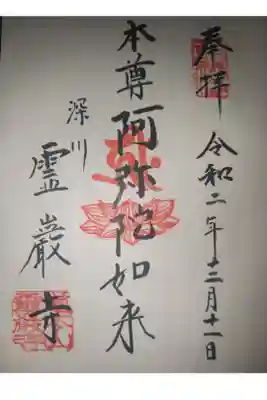 奉拝
令和二年十二月十一日
本尊阿弥陀如来
深川
霊巖寺